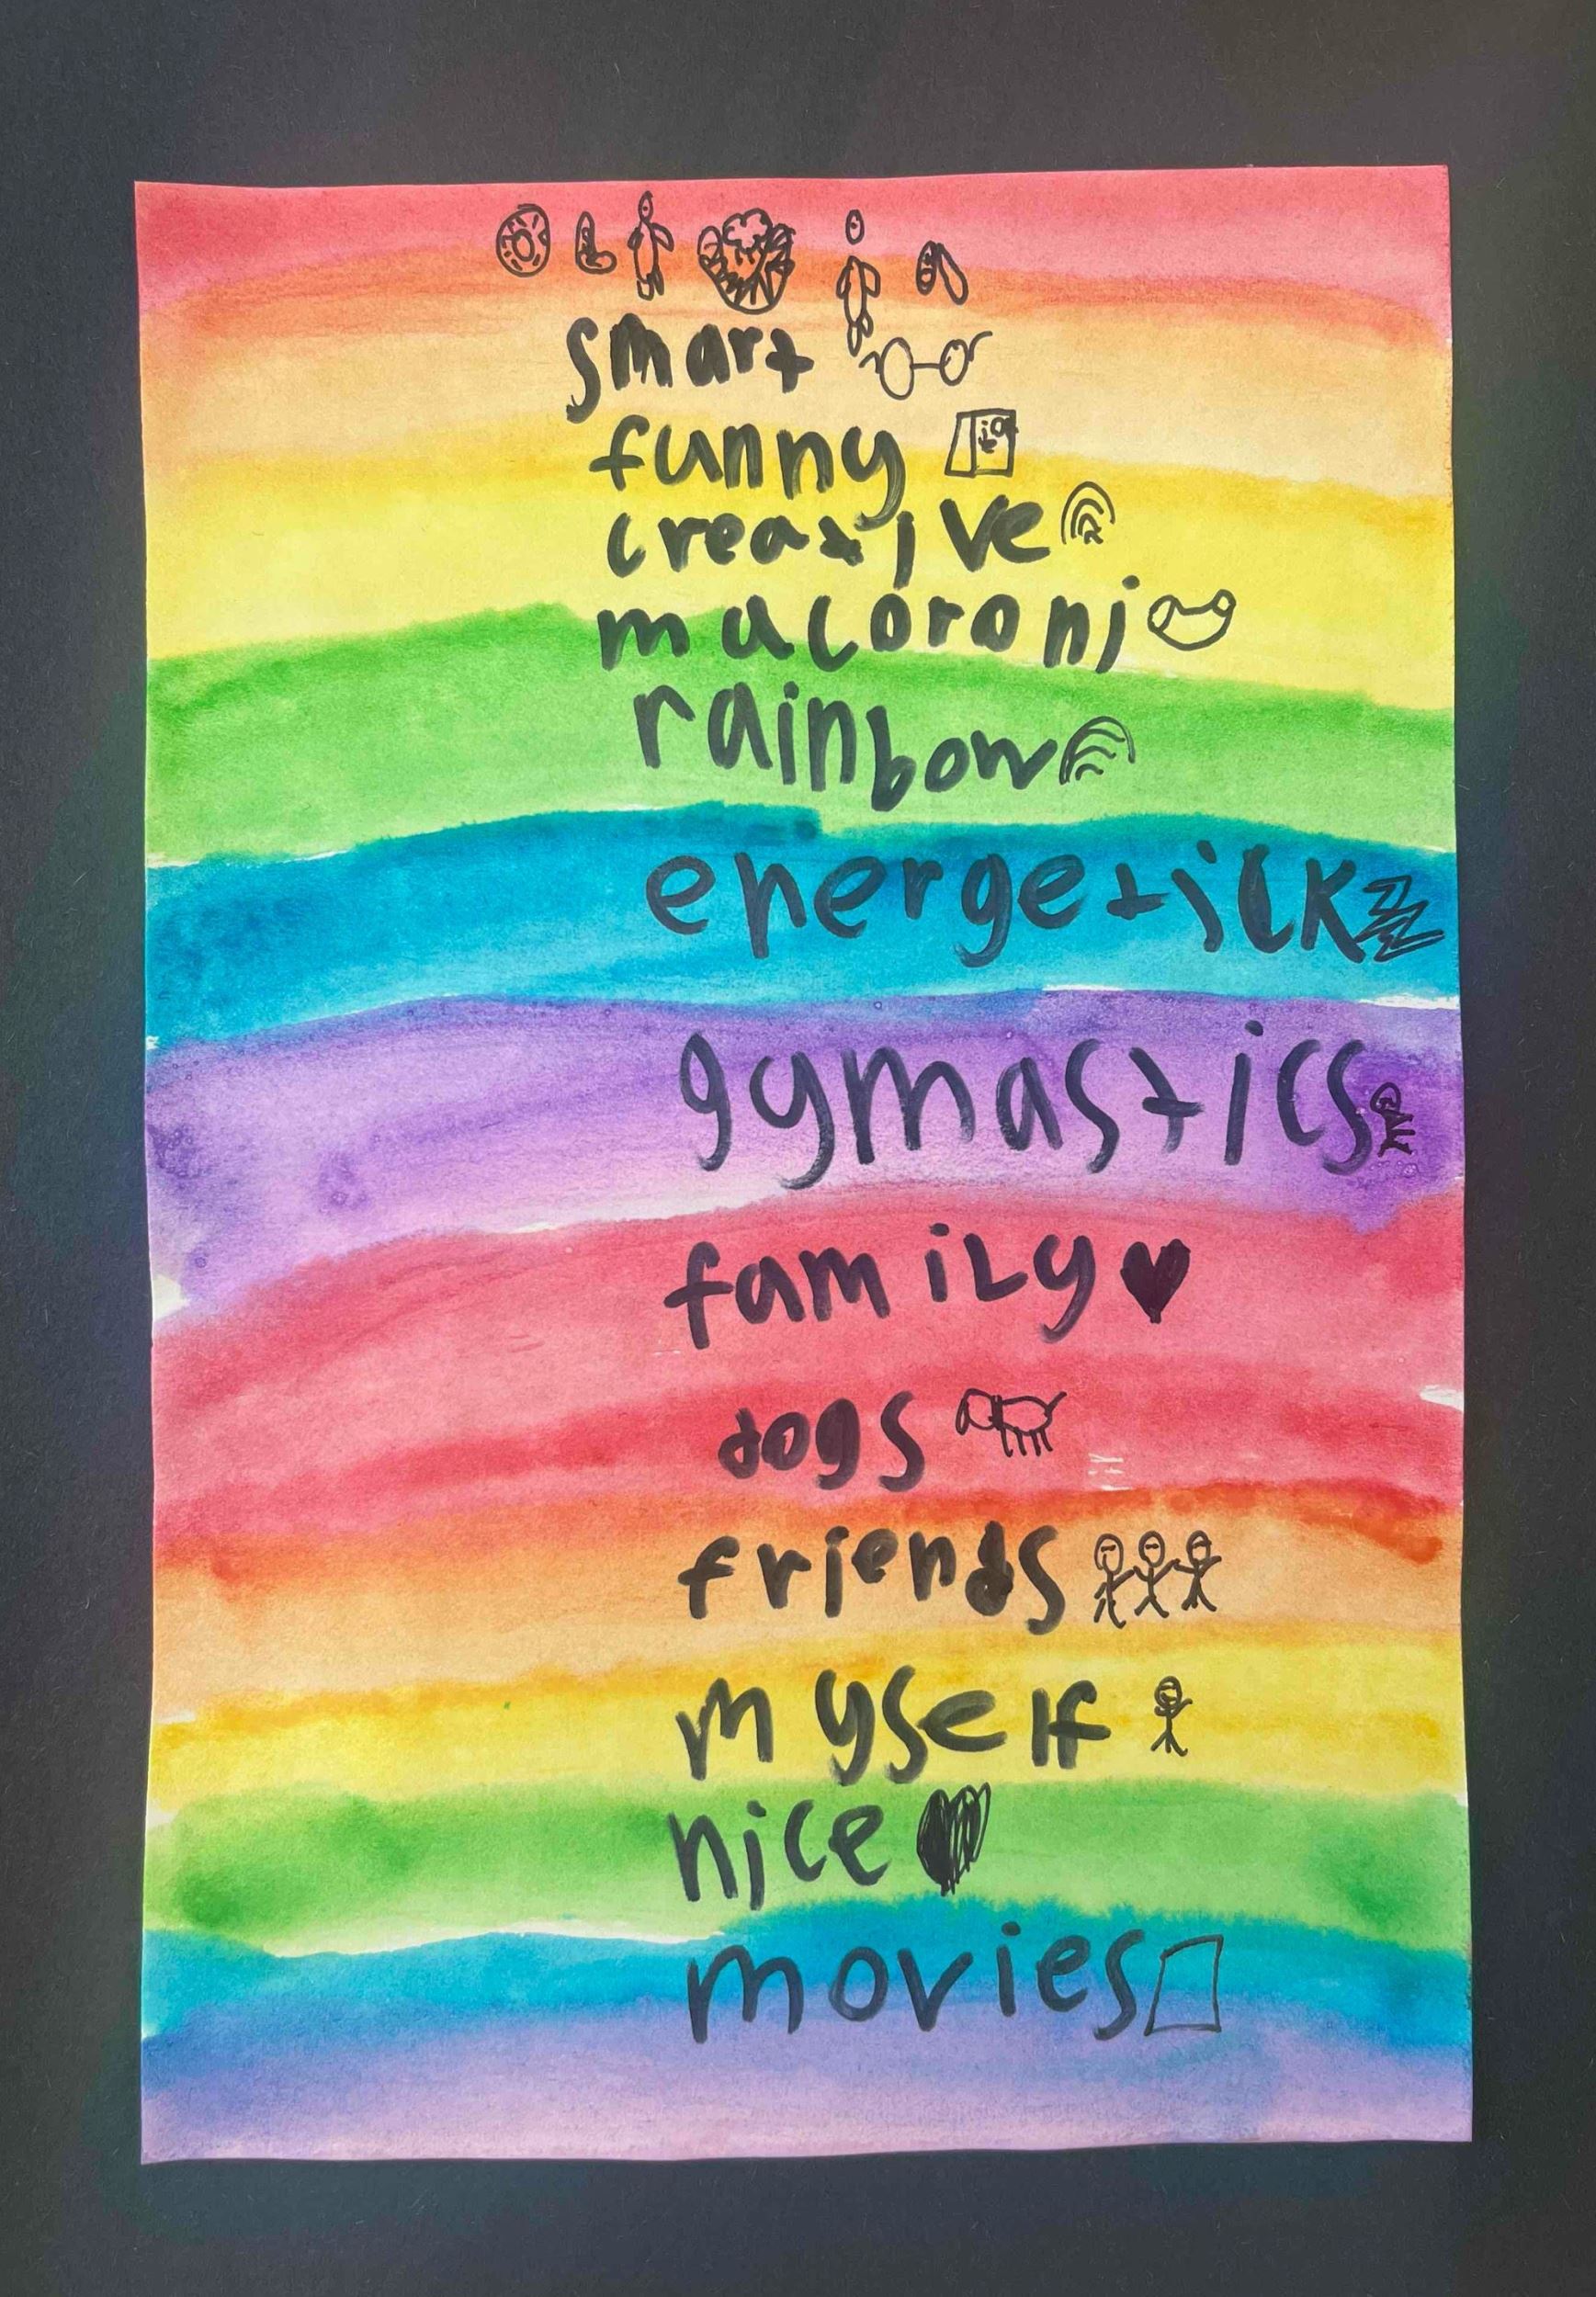 OLIVIA
smart
funny
creative
macoroni
rainbow
energetick
gymastics
family
dogs
friends
myself
nice
movies